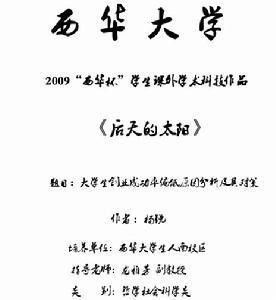 西华大学
2009“西华杯”学生课外学术科技作品
《后天的太阳》
题目：大学生创业成功率偏低原因分析及其对策
作者：杨锐
培养单位：西华大学生人南校区
指导老师：龙柏 副教授
类 别：哲学社会科学类